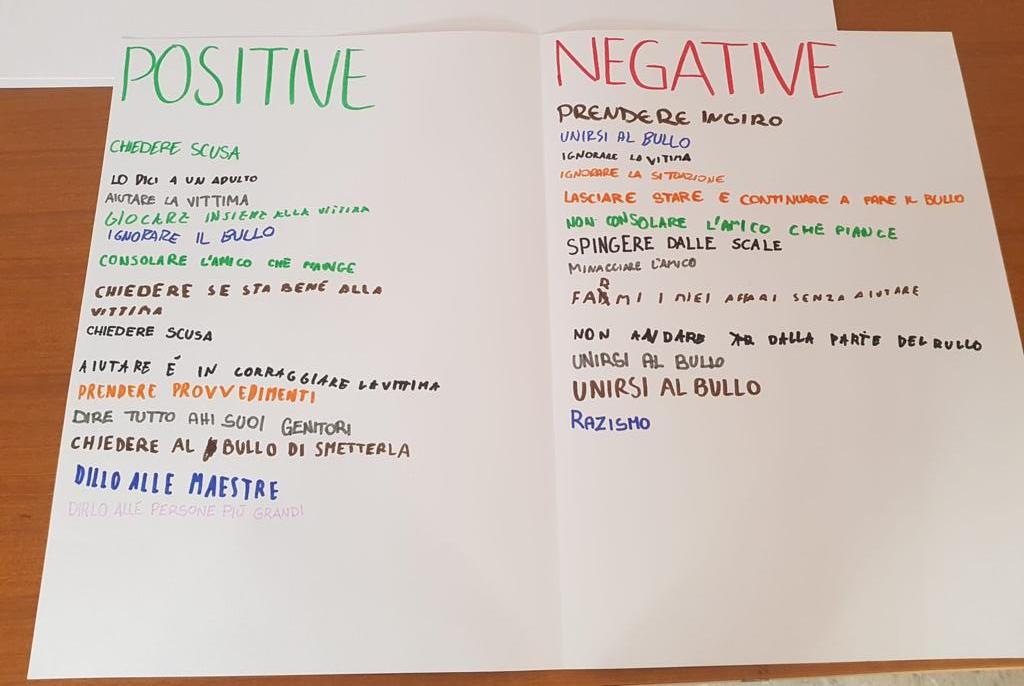 POSITIVE
CHIEDERE SCUSA
LO DICI A UN ADULTO
AIUTARE LA VITTIMA
GIOCARE INSIEME ALLA VITTIMA
IGNORARE IL BULLO
CONSOLARE L'AMICO CHE PIANGE
CHIEDERE SE STA BENE ALLA
VITTIMA
CHIEDERE SCUSA
AIUTARE É IN CORRAGGIARE LA VITTIMA
PRENDERE PROVVEDIMENTI
DIRE TUTTO AHI SUOI GENITORI
CHIEDERE AL BULLO DI SMETTERLA
DILLO ALLE MAESTRE
DIRLO ALLE PERSONE PIÙ GRANDI
NEGATIVE
PRENDERE INGIRO
UNIRSI AL BULLO
IGNORARE LA VITIMA
IGNORARE LA SITUAZIONE
LASCIARE STARE E CONTINUARE A FARE IL BULLO
NON CONSOLARE L'AMICO CHE PIANGE
SPINGERE DALLE SCALE
MINACCIARE L'AMICO
FARMI I MIEI AFFARI SENZA AIUTARE
NON ANDARE DALLA PARTE DEL BULLO
UNIRSI AL BULLO
UNIRSI AL BULLO
RAZISMO